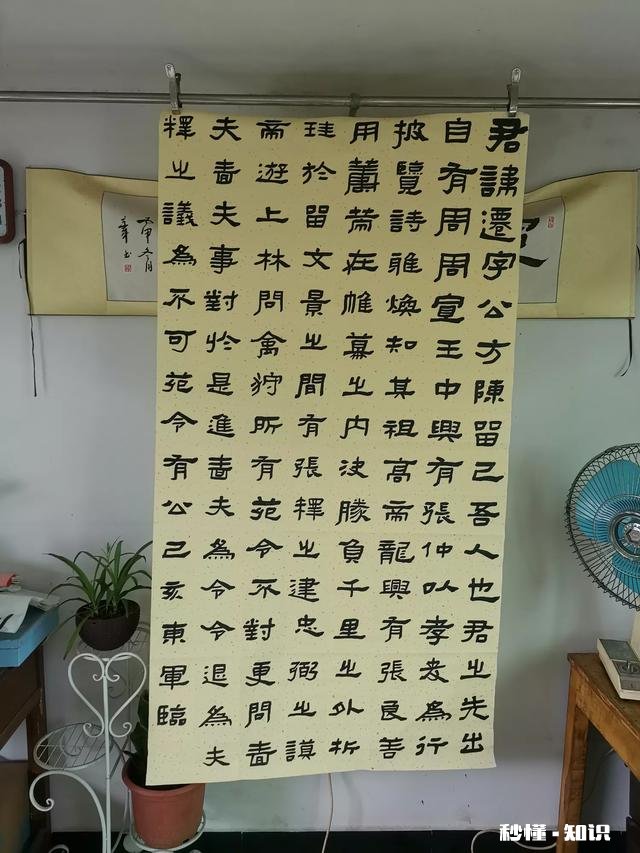 君諱遷字公方陳留己吾人也君之先出
自有周周宣王中興有張仲以孝友為行
披覽詩雅煥知其祖高帝龍興有張良善
用籌策在帷幕之內決勝負千里之外析
珪於留文景之間有張釋之建忠弼之謨
帝遊上林問禽狩所有苑令不對更問嗇
夫嗇夫事對於是進嗇夫為令令退為夫
釋之議為不可苑令有公己亥東軍臨
丙申冬月
秒懂-知识